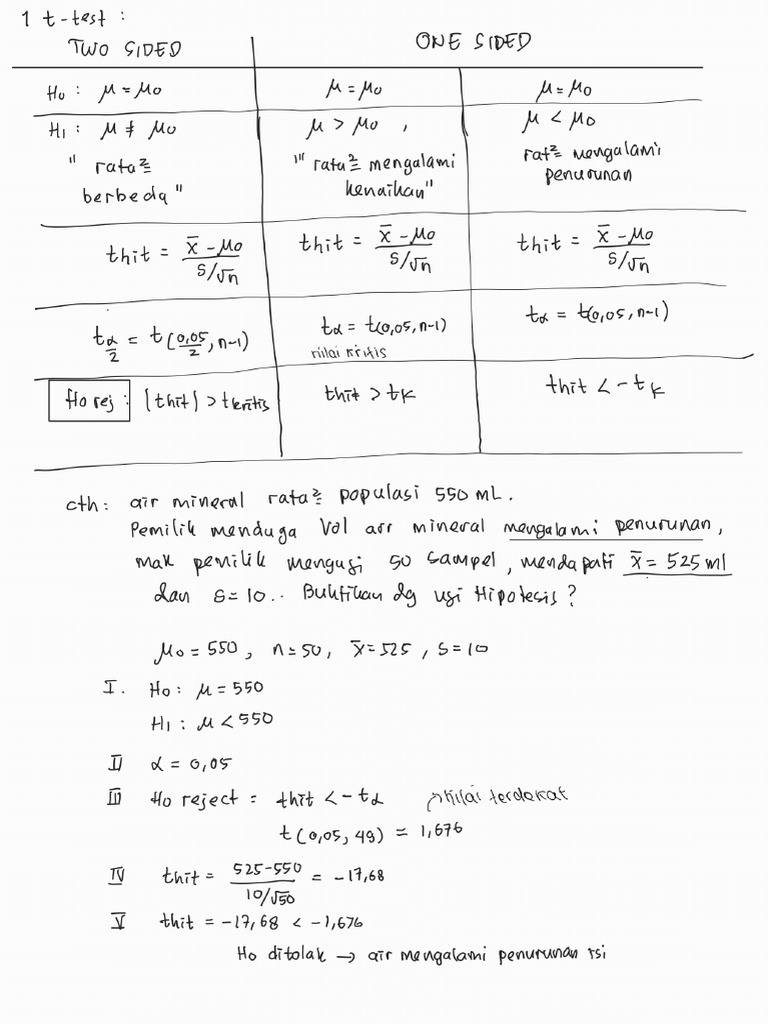 1 t-test :
TWO SIDED
ONE SIDED
H0 : μ = μ0
μ = μ0
μ = μ0
H1 : μ ≠ μ0
μ > μ0 ,
μ < μ0
" rata²
berbeda "
"" rata² mengalami
kenaikan"
rat² mengalami
penurunan
thit = x̄ - μ0 / s/√n
thit = x̄ - μ0 / s/√n
thit = x̄ - μ0 / s/√n
tα/2 = t(0,05/2, n-1)
tα = t(0,05, n-1)
nilai kritis
tα = t(0,05, n-1)
H0 rej : |thit| > tkritis
thit > tK
thit < -tK
cth: air mineral rata² populasi 550 mL.
Pemilik menduga Vol air mineral mengalami penurunan,
mak pemilik menguji 50 sampel, mendapati x̄ = 525 ml
dan s = 10.. Buktikan dg uji Hipotesis?
μ0 = 550, n = 50, x̄ = 525, s = 10
I. H0: μ = 550
H1 : μ < 550
II α = 0,05
III H0 reject = thit < -tα nilai terdekat
t(0,05, 49) = 1,676
IV thit = 525-550 / 10/√50 = -17,68
V thit = -17,68 < -1,676
H0 ditolak → air mengalami penurunan isi